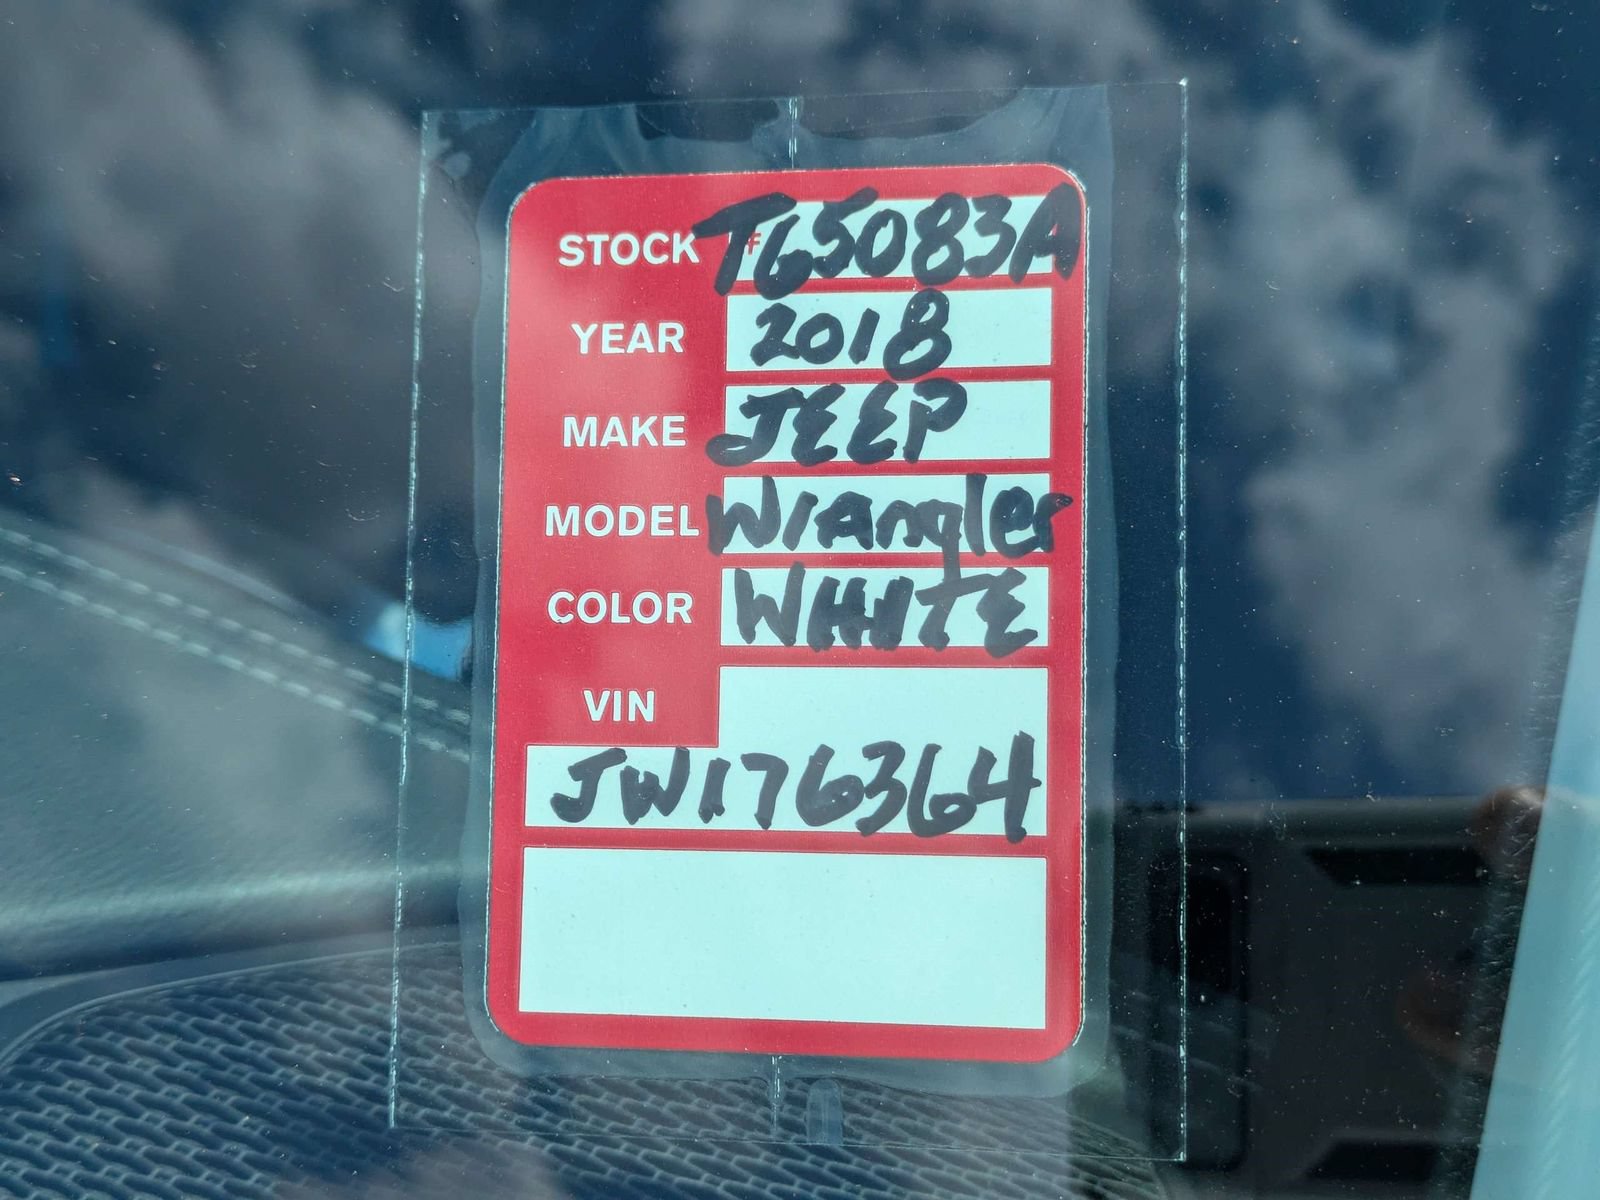 STOCK # T65083A
YEAR 2018
MAKE JEEP
MODEL Wrangler
COLOR WHITE
VIN
JW176364